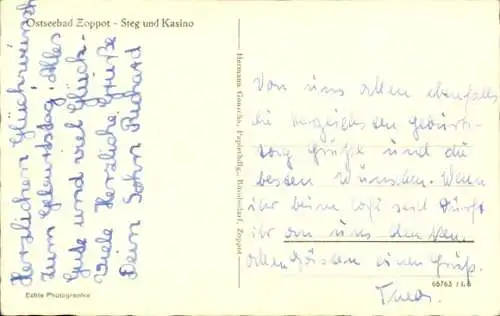 Ostseebad Zoppot - Steg und Kasino
Herzlichen Glückwunsch
zum Geburtstag, Alles
Gute und viel Glück.
Viele Herzliche Grüße
Dein Sohn Richard
Hermann Papierhdlg., Zoppot
Von uns allen ebenfalls
die herzlichsten Geburts-
tag Grüße und die
besten Wünschen. Wenn
ihr beim seid dürft
ihr an uns denken.
allen Gästen einen Gruß.
65763
Echte Photographie